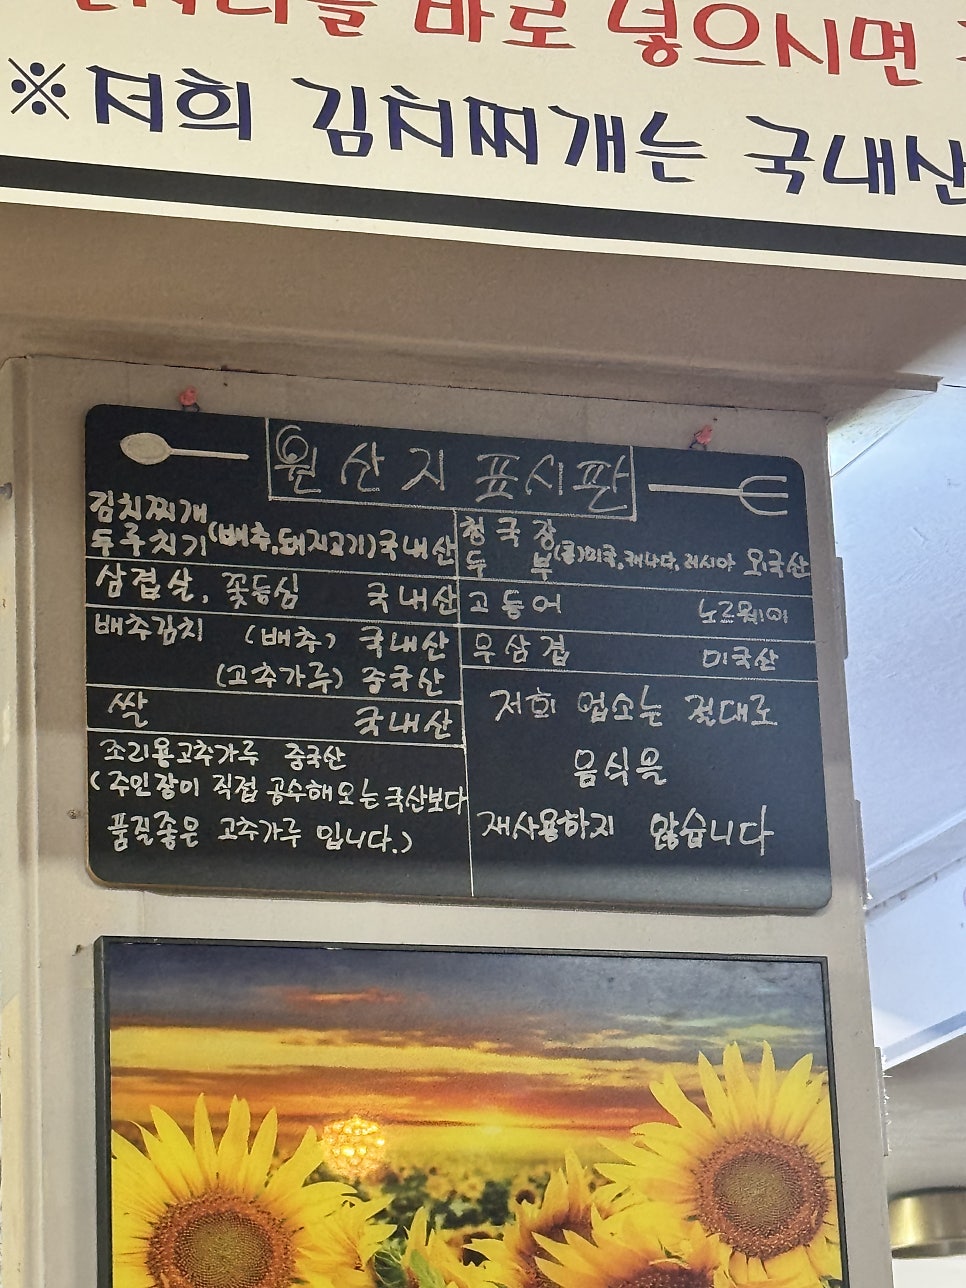 바로 넣으시면
※저희 김치찌개는 국내산
원산지 표시판
김치찌개
두루치기 (배추,돼지고기) 국내산
삼겹살, 꽃등심 국내산
배추김치 (배추) 국내산
(고추가루) 중국산
쌀 국내산
조리용고추가루 중국산
(주인장이 직접 공수해오는 국산보다
품질좋은 고추가루 입니다.)
청국장
두 부 (콩)미국,캐나다,러시아 외국산
고등어 노르웨이
우삼겹 미국산
저희 업소는 절대로
음식을
재사용하지 않습니다